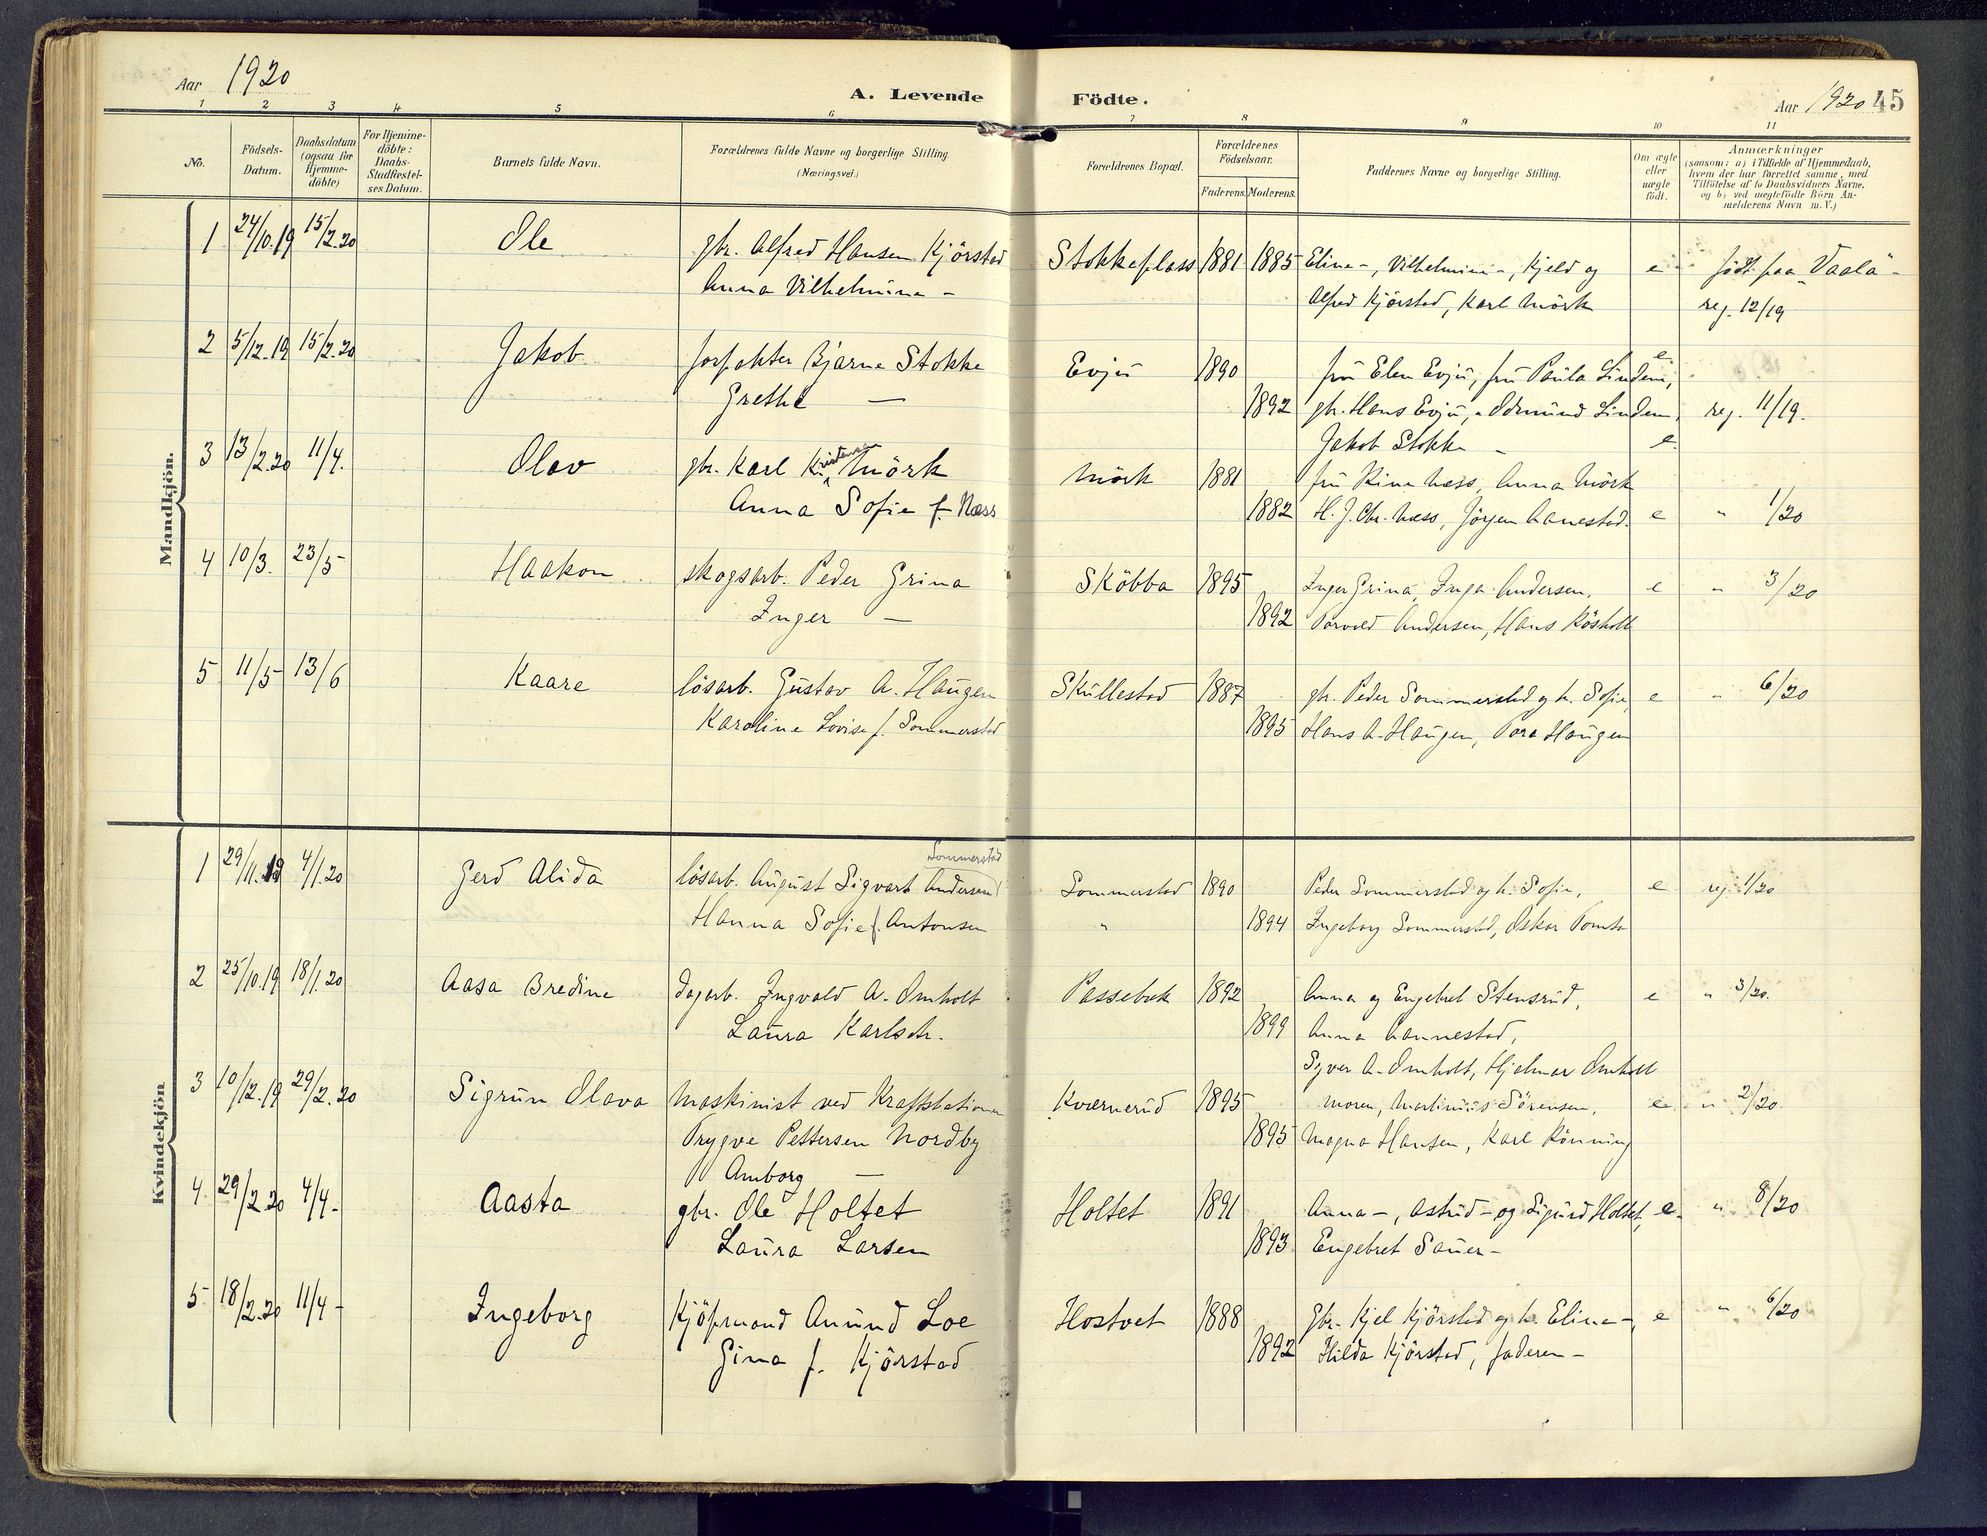 Aar 1920
A. Levende Födte.
Aar 1920 45
1 2 3 4 5 6 7 8 9 10 11
No.
Födsels-
Datum.
Daabsdatum
(ogsaa for
Hjemme-
döbte)
For Hjemme-
döbte:
Daabs-
Stadfæstel-
ses Datum.
Barnets fulde Navn.
Forældrenes fulde Navne og borgerlige Stilling.
(Næringsvei.)
Forældrenes Bopæl.
Forældrenes
Födselsaar.
Faderens. Moderens.
Faddernes Navne og borgerlige Stilling.
Om ægte
eller
uægte
födt.
Anmærkninger
(saasom: a) i Tilfælde af Hjemmedaab,
hvem der har forrettet samme, med
Tilföielse af to Daabsvidners Navne,
og b) ved uægtefödte Börn An-
melderens Navn m. V.)
Mandkjön.
1 24/10.19 15/2.20 Ole gbr. Alfred Hansen Kjörstad Stokkeplass 1881 1885 Eline -, Vilhelmine -, Kjeld og e födt paa Vaalö -
Anna Vilhelmine - Alfred Kjörstad, Karl Mörk reg. 12/19
2 5/12.19 15/2.20 Jakob forpakter Bjarne Stokke Evju 1890 fru Elen Evju, fru Paula Lindem, e
Grethe — 1892 gb. Hans Evju, Odmund Lindem, reg. 11/19.
Jakob Stokke - e
3 13/2.20 11/4. Olav gbr. Karl Kristensen Mörk Mörk 1881 fru Rine Næss, Anna Mörk
Anna Sofie f. Næss 1882 H. J. Chr. Næss, Jörgen Aanestad. e " 1/20
4 10/3. 23/5 - Haakon skogsarb. Peder Grina Sköbba 1895 Inger Grina, Inga Andersen, e " 3/20
Inger — 1892 Torvald Andersen, Hans Rösholt
5 11/5 - 13/6 Kaare lösarb. Gustav A. Haugen Skullestad 1887 gb. Peder Sommerstad og h. Sofie, e " 6/20
Karoline Lovise f. Sommerstad 1895 Hans A. Haugen, Tora Haugen
Kvindekjön
1 29/11.19 4/1.20 Gerd Alida lösarb. August Sigvart Andersen Sommerstad Sommerstad 1890 Peder Sommerstad og h. Sofie, e reg. 1/20
Hanna Sofie f. Antonsen " 1894 Ingeborg Sommerstad, Oskar Tomta
2 25/10.19 18/1.20 Aasa Bredine dagarb. Ingvald A. Omholt Passebæk 1892 Anna og Engebret Stensrud, e " 3/20.
Laura Karlsdtr. 1899 Anna Aannestad,
Syver A. Omholt, Hjelmar Omholt
3 10/12.19 29/2.20 Sigrun Olava Maskinist ved Kraftstationen Kværnerud 1895 moren, Martinius Sörensen, e " 2/20.
Trygve Pettersen Nordby 1895 Magna Hansen, Karl Rönning
Amborg —
4. 29/2.20 4/4 - Aasta gbr. Ole Holtet Holtet 1891 Anna -, Astrid - og Sigurd Holtet, e " 8/20
Laura Larsen 1893 Engebret Sauer -
5 18/2.20 11/4 - Ingeborg Kjöpmand Amund Loe Hostvet 1888 gbr. Kjel Kjörstad og h. Eline -, e " 6/20
Gina f. Kjörstad 1892 Hilda Kjörstad, faderen -